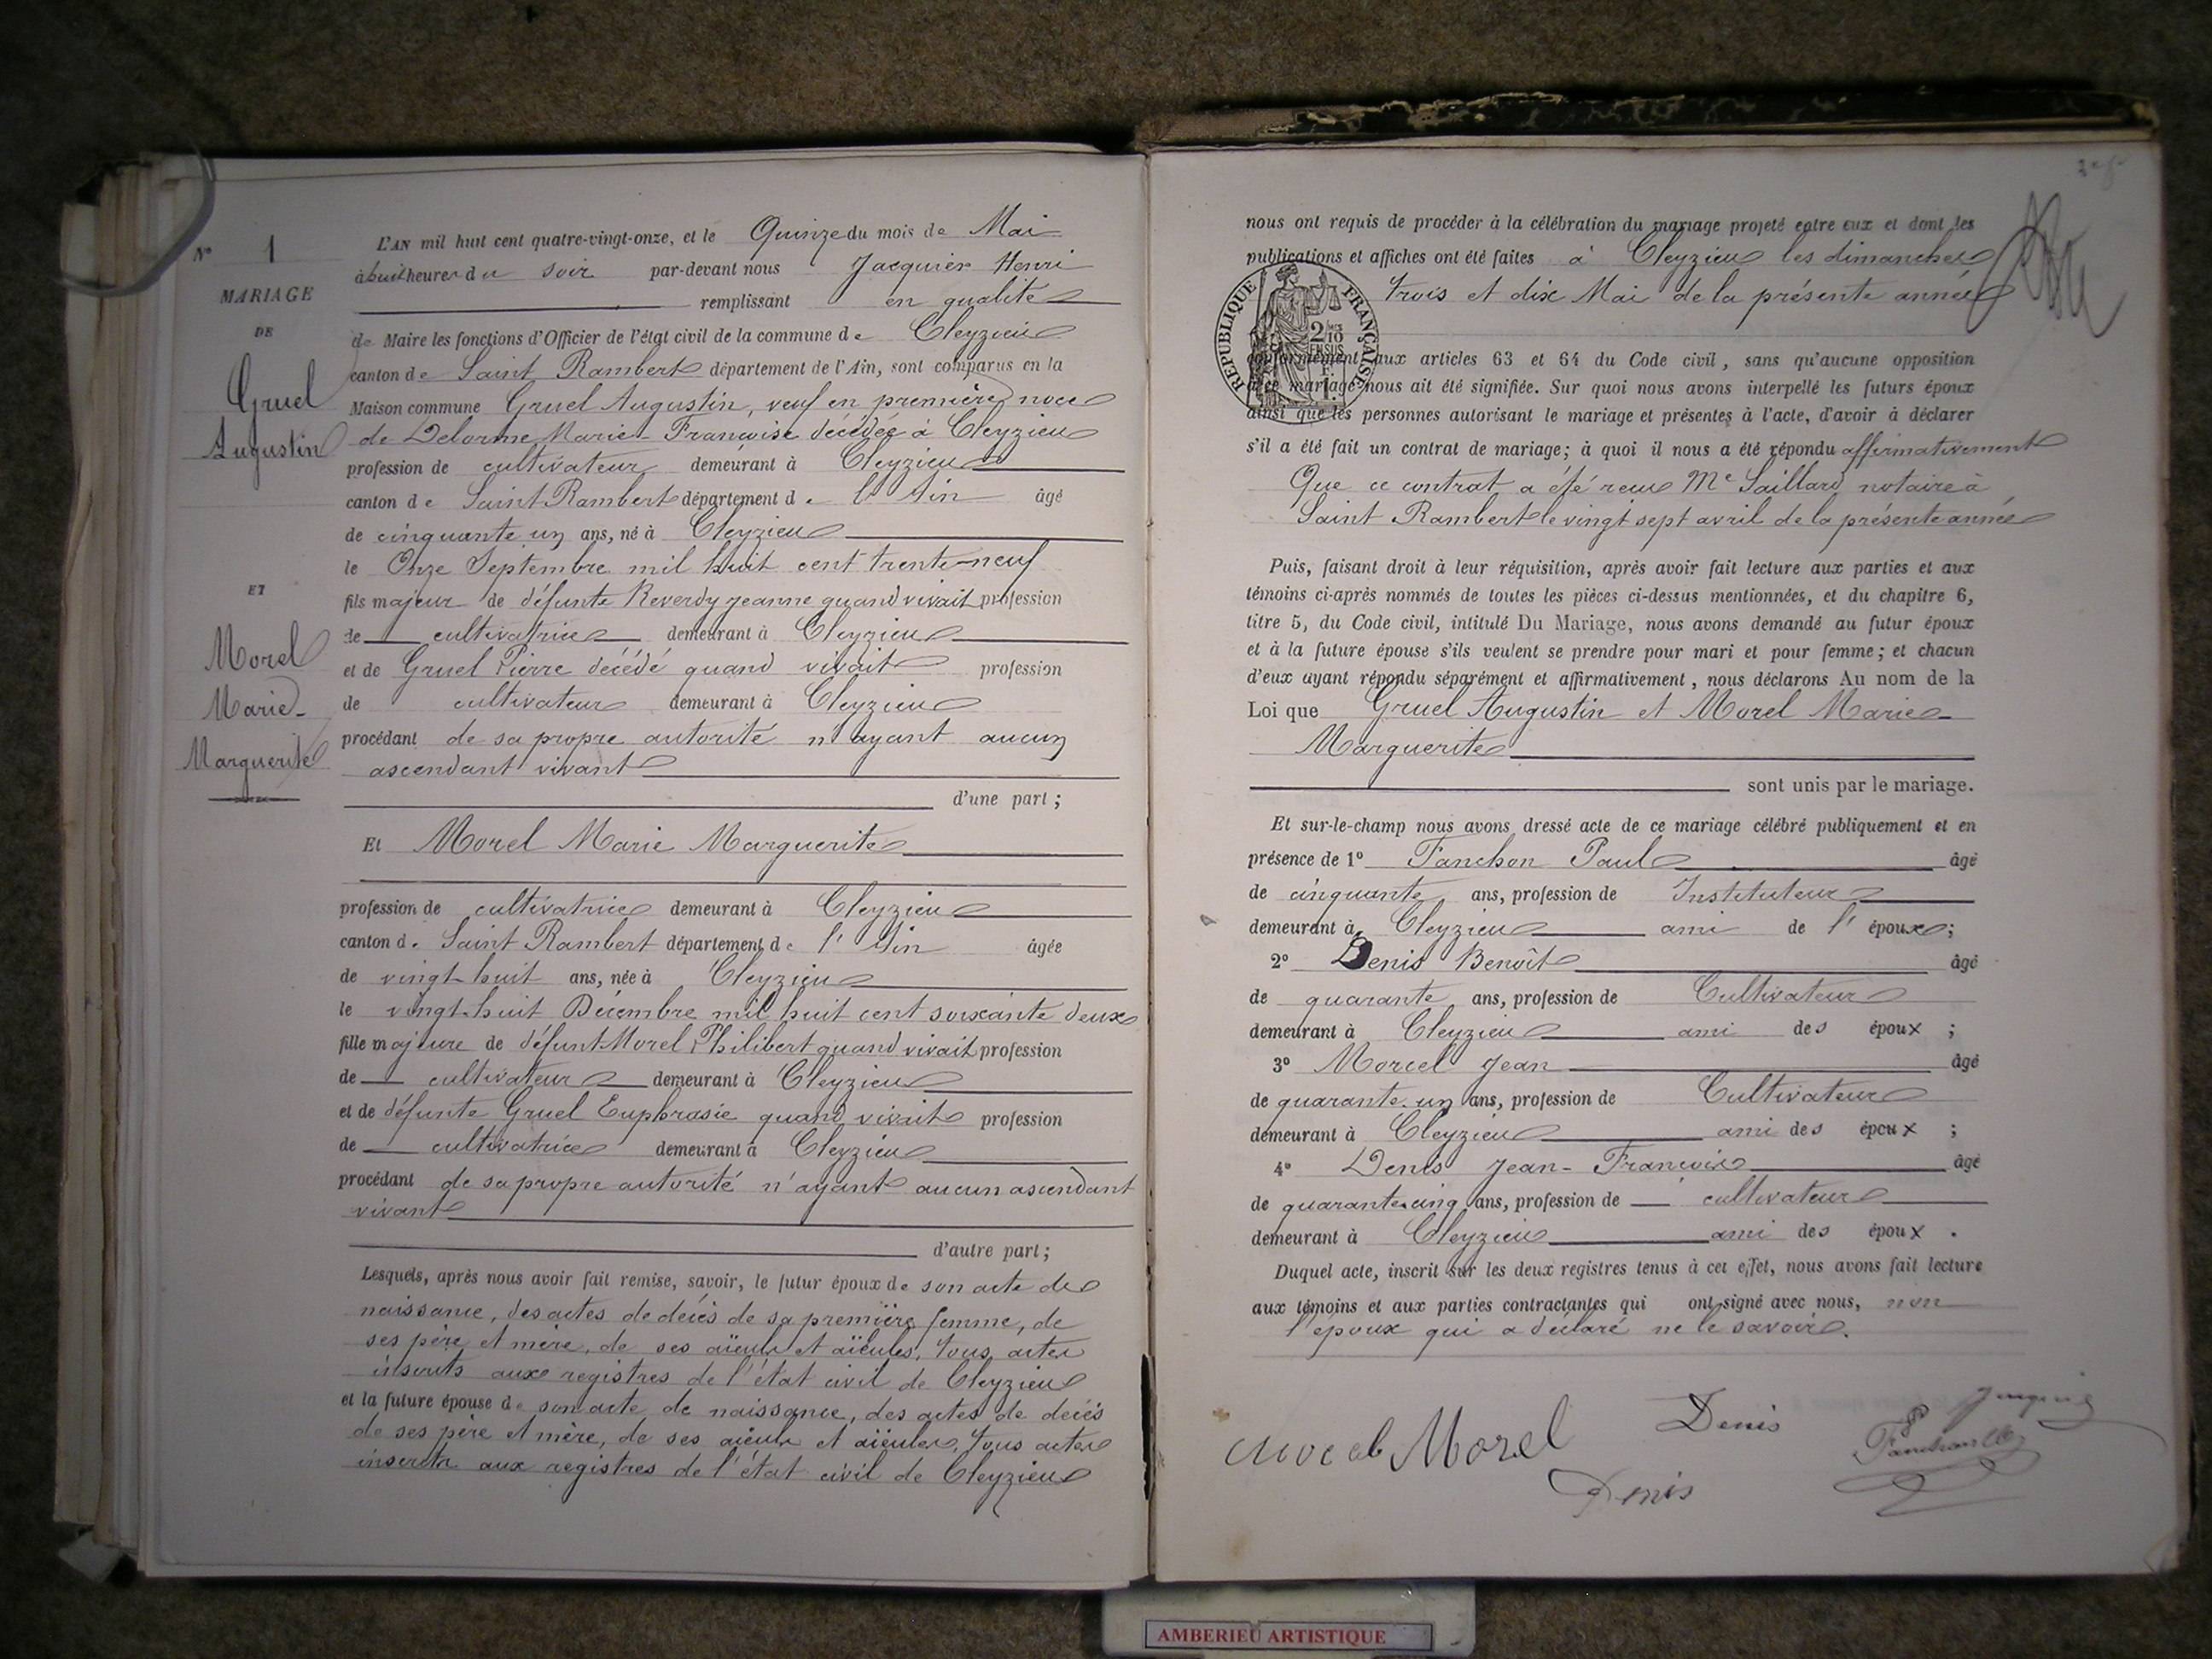 N° 1
MARIAGE
DE
Gruel
Augustin
ET
Morel
Marie-
Marguerite
L'AN mil huit cent quatre-vingt-onze, et le Quinze du mois de Mai
à huit heures du soir par-devant nous Jacquier Henri
remplissant en qualité
de Maire les fonctions d'Officier de l'état civil de la commune de Cleyzieu
canton de Saint Rambert département de l'Ain, sont comparus en la
Maison commune Gruel Augustin, veuf en première noce
de Delorme Marie-Françoise décédée à Cleyzieu
profession de cultivateur demeurant à Cleyzieu
canton de Saint Rambert département de l'Ain âgé
de cinquante un ans, né à Cleyzieu
le Onze Septembre mil huit cent trente-neuf
fils majeur de défunte Reverdy Jeanne quand vivait profession
de cultivatrice demeurant à Cleyzieu
et de Gruel Pierre décédé quand vivait profession
de cultivateur demeurant à Cleyzieu
procédant de sa propre autorité n'ayant aucun
ascendant vivant
d'une part;
Et Morel Marie Marguerite
profession de cultivatrice demeurant à Cleyzieu
canton de Saint Rambert département de l'Ain âgée
de vingt-huit ans, née à Cleyzieu
le vingt-huit Décembre mil huit cent soixante deux
fille majeure de défunt Morel Philibert quand vivait profession
de cultivateur demeurant à Cleyzieu
et de défunte Gruel Euphrasie quand vivait profession
de cultivatrice demeurant à Cleyzieu
procédant de sa propre autorité n'ayant aucun ascendant
vivant
d'autre part;
Lesquels, après nous avoir fait remise, savoir, le futur époux de son acte de
naissance, des actes de décès de sa première femme, de
ses père et mère, de ses aïeuls et aïeules, tous actes
inscrits aux registres de l'état civil de Cleyzieu
et la future épouse de son acte de naissance, des actes de décès
de ses père et mère, de ses aïeuls et aïeules, tous actes
inscrits aux registres de l'état civil de Cleyzieu
nous ont requis de procéder à la célébration du mariage projeté entre eux et dont les
publications et affiches ont été faites à Cleyzieu les dimanches
trois et dix Mai de la présente année
RÉPUBLIQUE FRANÇAISE
2/10
EN SUS
conformément aux articles 63 et 64 du Code civil, sans qu'aucune opposition
à ce mariage nous ait été signifiée. Sur quoi nous avons interpellé les futurs époux
ainsi que les personnes autorisant le mariage et présentes à l'acte, d'avoir à déclarer
s'il a été fait un contrat de mariage; à quoi il nous a été répondu affirmativement
Que ce contrat a été reçu Me Saillard notaire à
Saint Rambert le vingt sept avril de la présente année
Puis, faisant droit à leur réquisition, après avoir fait lecture aux parties et aux
témoins ci-après nommés de toutes les pièces ci-dessus mentionnées, et du chapitre 6,
titre 5, du Code civil, intitulé Du Mariage, nous avons demandé au futur époux
et à la future épouse s'ils veulent se prendre pour mari et pour femme; et chacun
d'eux ayant répondu séparément et affirmativement, nous déclarons Au nom de la
Loi que Gruel Augustin et Morel Marie-
Marguerite
sont unis par le mariage.
Et sur-le-champ nous avons dressé acte de ce mariage célébré publiquement et en
présence de 1° Fanchon Paul âgé
de cinquante ans, profession de Instituteur
demeurant à Cleyzieu ami de l'époux;
2° Denis Benoît âgé
de quarante ans, profession de Cultivateur
demeurant à Cleyzieu ami des époux;
3° Morcel Jean âgé
de quarante un ans, profession de Cultivateur
demeurant à Cleyzieu ami des époux;
4° Denis Jean-François âgé
de quarante-cinq ans, profession de cultivateur
demeurant à Cleyzieu ami des époux.
Duquel acte, inscrit sur les deux registres tenus à cet effet, nous avons fait lecture
aux témoins et aux parties contractantes qui ont signé avec nous, non
l'époux qui a déclaré ne le savoir.
Morel Denis
Denis
AMBERIEU ARTISTIQUE